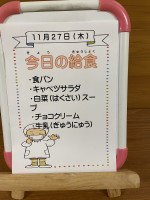 11月27日(木)
きょう きゅうしょく
今日の給食
・食パン
・キャベツサラダ
・白菜(はくさい)スー
プ
・チョコクリーム
・牛乳(ぎゅうにゅう)